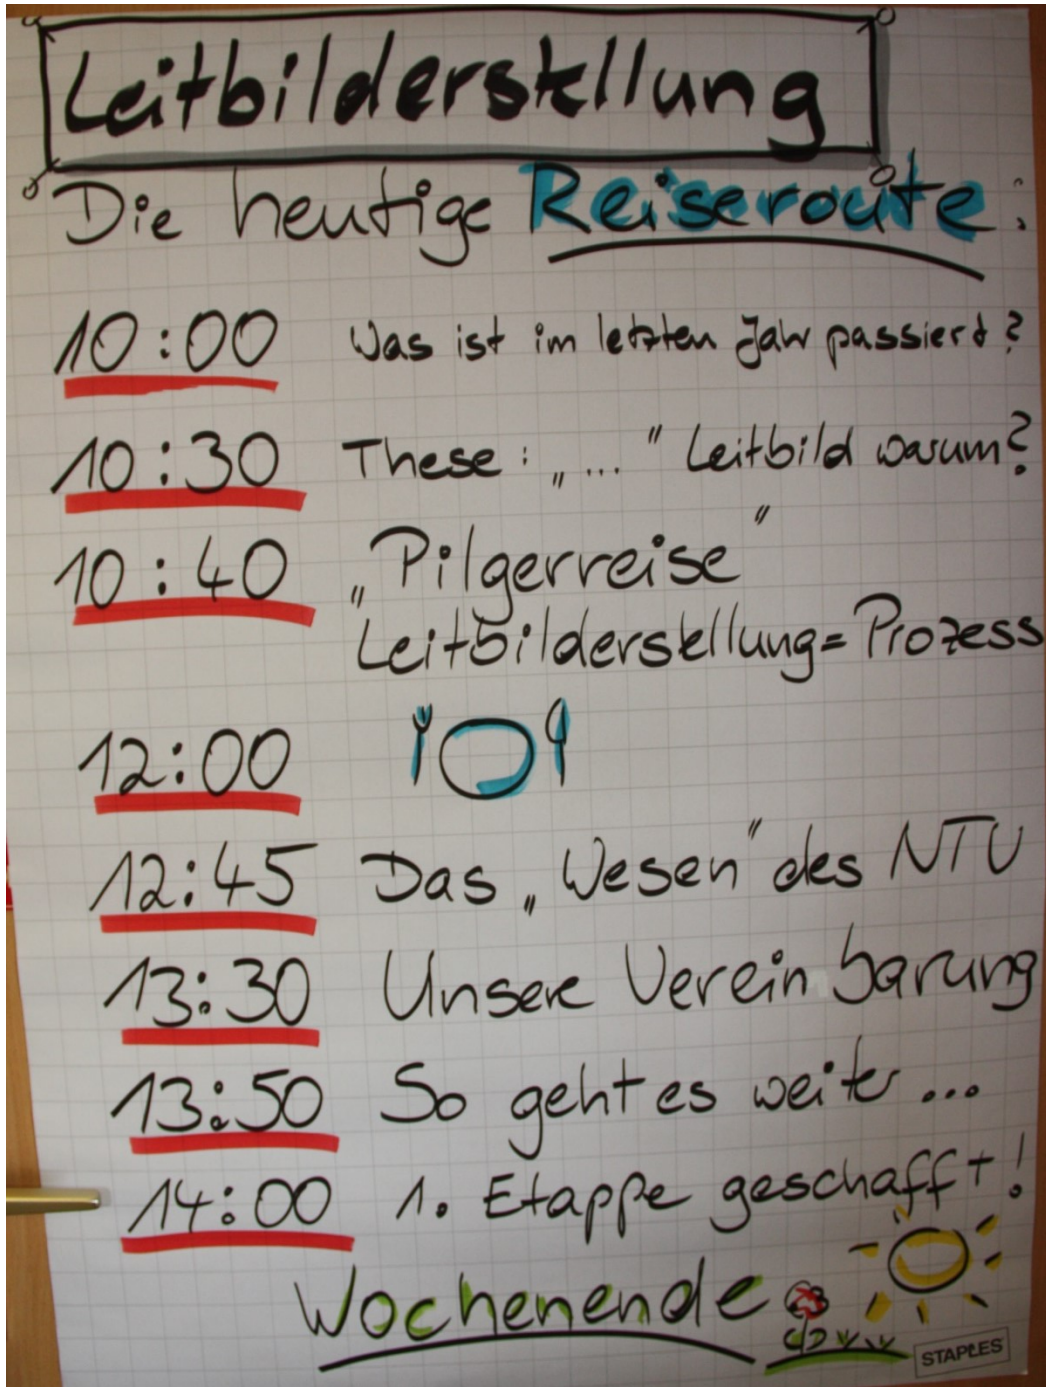 Leitbilderstellung
Die heutige Reiseroute:
10:00 Was ist im letzten Jahr passiert?
10:30 These: „..." Leitbild warum?
10:40 „Pilgerreise"
Leitbilderstellung = Prozess
12:00
12:45 Das „Wesen" des NTU
13:30 Unsere Vereinbarung
13:50 So geht es weiter...
14:00 1. Etappe geschafft!
Wochenende
STAPLES